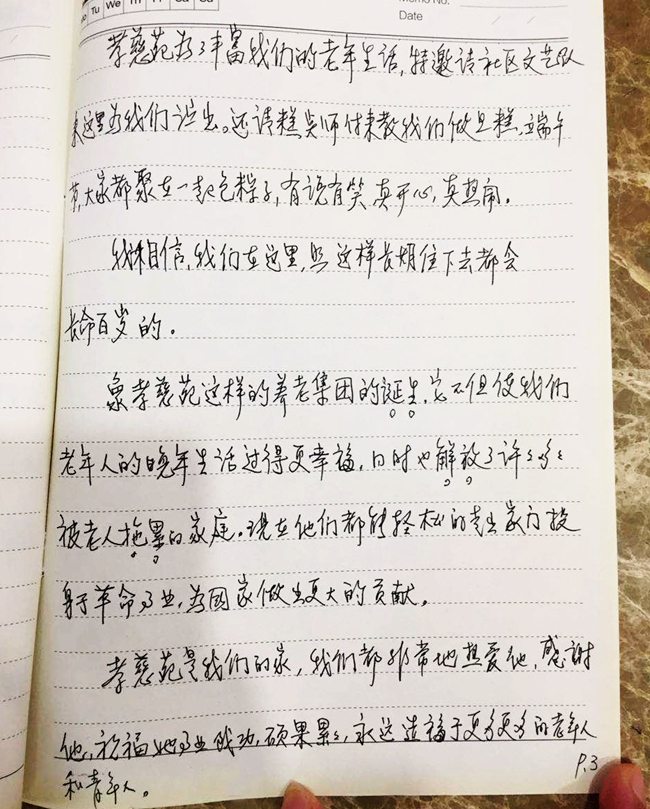 Mo Tu We Th Fr Sa Su
Memo No.
Date
孝慈苑为了丰富我们的老年生活,特邀请社区文艺队
来这里为我们演出。还请糕点师付来教我们做旦糕,端午
节,大家都聚在一起包粽子,有说有笑,真开心,真热闹。
我相信,我们在这里,照这样长期住下去都会
长命百岁的。
象孝慈苑这样的养老集团的诞生,它不但使我们
老年人的晚年生活过得更幸福,同时也解放了许许多多
被老人拖累的家庭。现在他们都能轻松的走出家门投
身于革命事业,为国家做出更大的贡献。
孝慈苑是我们的家,我们都非常地热爱他,感谢
他,祝福她事业成功,硕果累累,永远造福于更多更多的老年人
和青年人。
P.3